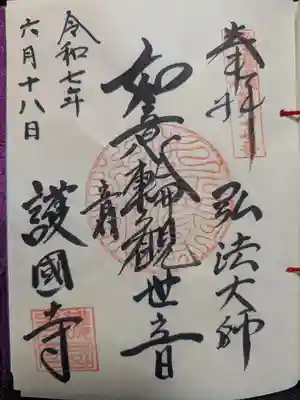 奉拝
弘法大師
如意輪観世音
護國寺
令和七年
六月十八日